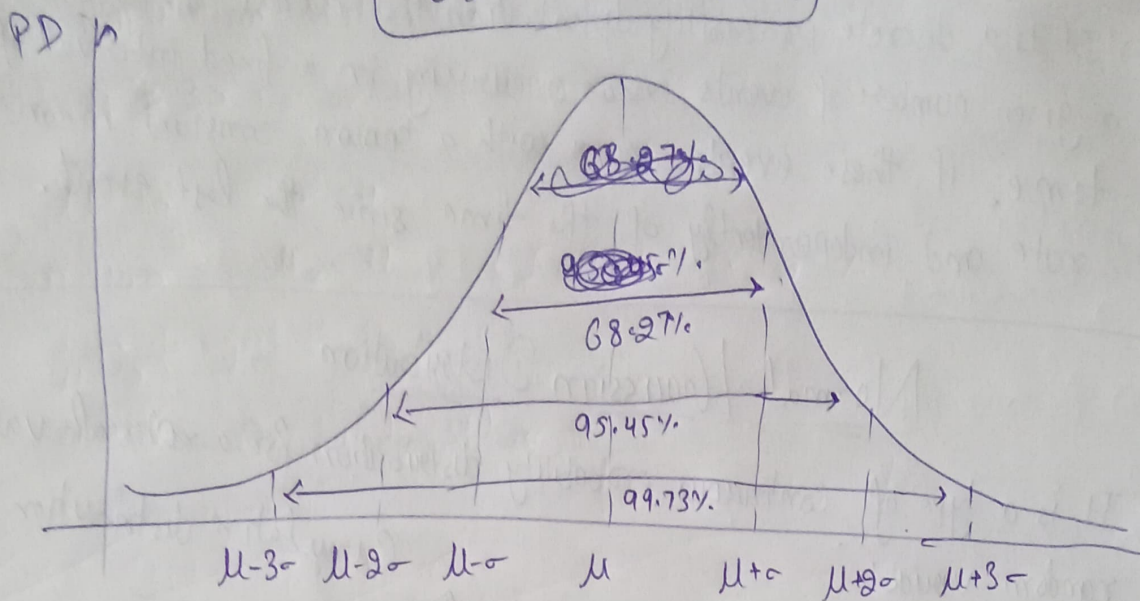 PD
68.27%
68.27%
95.45%
99.73%
μ-3σ μ-2σ μ-σ μ μ+σ μ+2σ μ+3σ